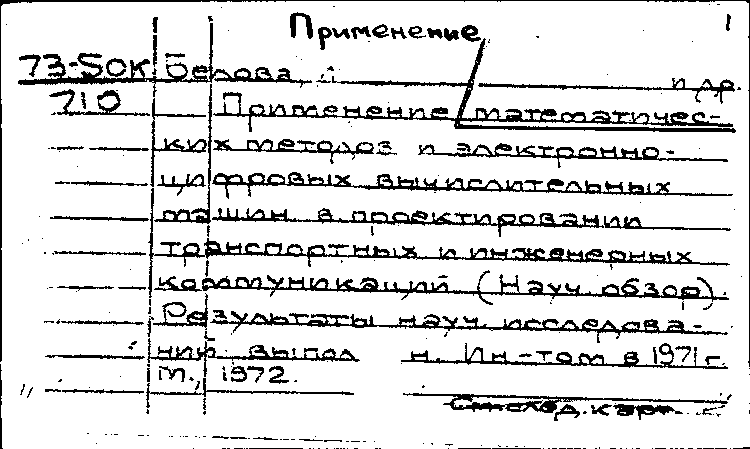 Применение 1
73-5OK Белова, и др.
710 Применение математичес-
ких методов и электронно-
цифровых вычислительных
машин в проектировании
транспортных и инженерных
коммуникаций (Науч. обзор).
Результаты науч. исследова-
ний выпол н. Ин-том в 1971 г.
М., 1972.
См. след. карт.